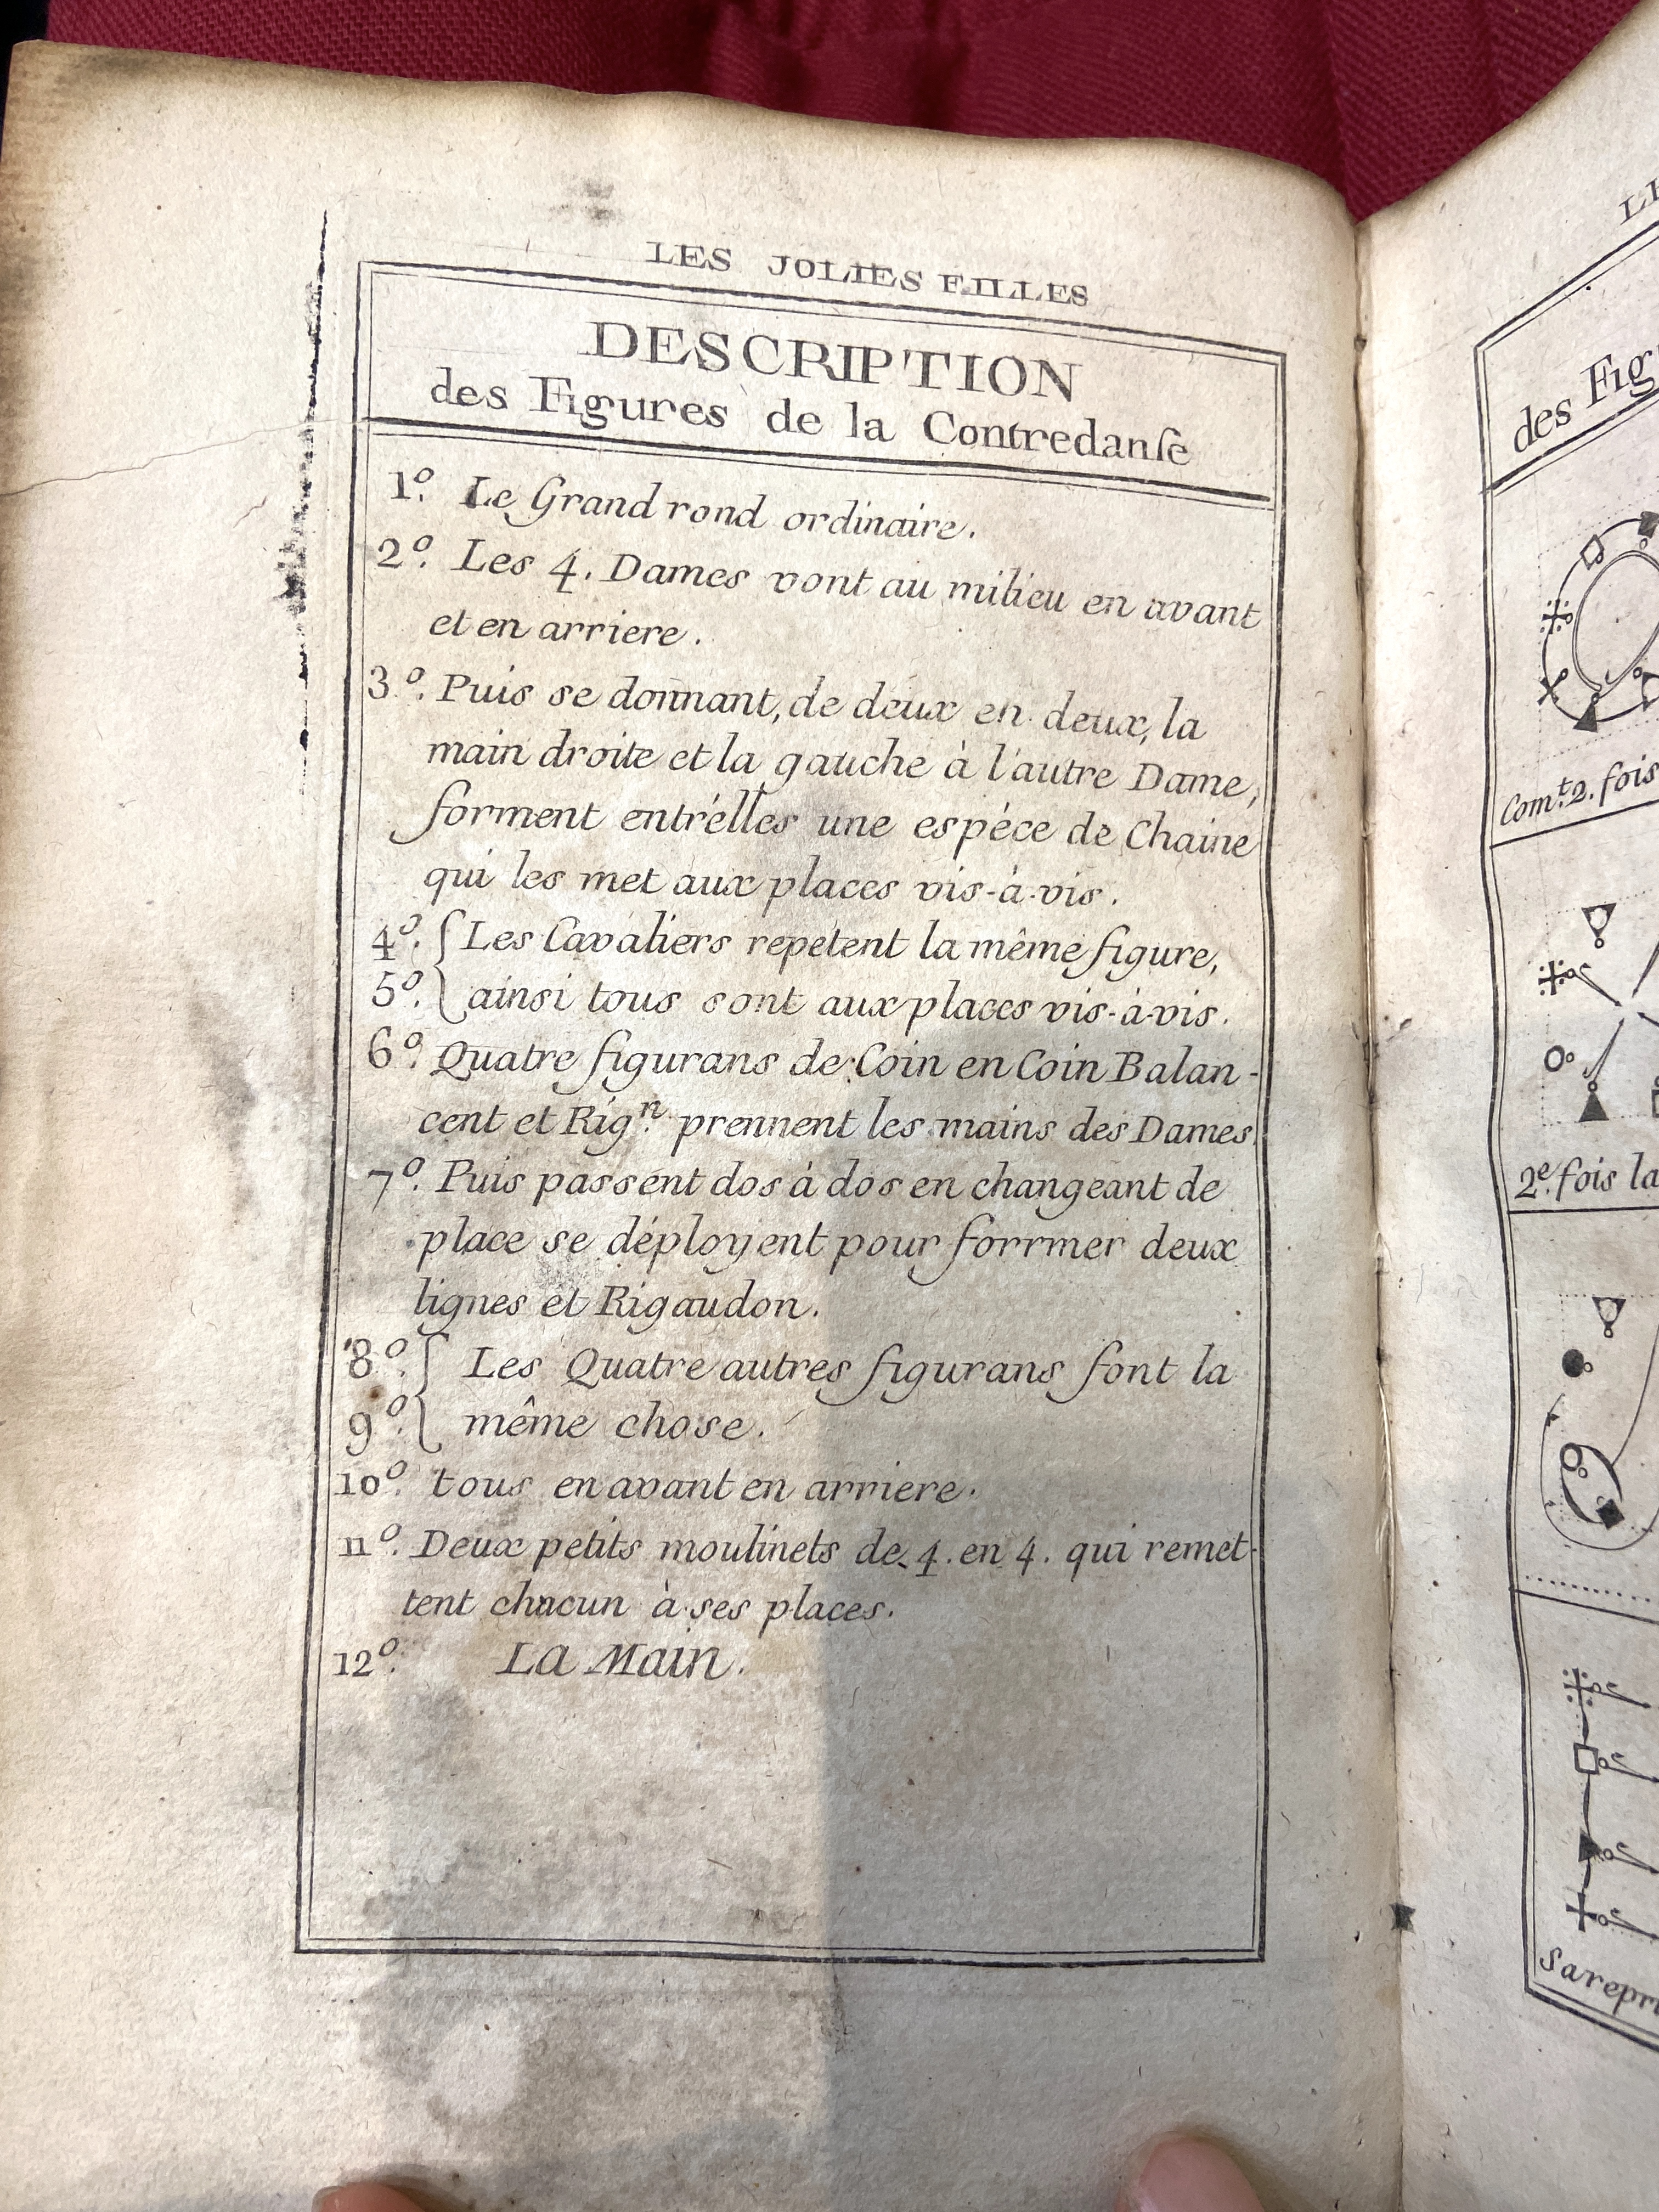 LES JOLIES FILLES
DESCRIPTION
des Figures de la Contredanſe
1º. Le Grand rond ordinaire.
2º. Les 4. Dames vont au milieu en avant
et en arriere.
3º. Puis se donnant, de deux en deux, la
main droite et la gauche à l'autre Dame,
forment entr'élles une espéce de Chaine
qui les met aux places vis-à-vis.
4º. { Les Cavaliers repetent la même figure,
5º. { ainsi tous sont aux places vis-à-vis.
6º. Quatre figurans de Coin en Coin Balan-
cent et Rigⁿ. prennent les mains des Dames
7º. Puis passent dos à dos en changeant de
place se déployent pour forrmer deux
lignes et Rigaudon.
8º. { Les Quatre autres figurans font la
9º. { même chose.
10º. tous en avant en arriere.
11º. Deux petits moulinets de 4. en 4. qui remet-
tent chacun à ses places.
12º. La Main.
des Fig
Com.t 2. fois
2.e fois la
Sa repr